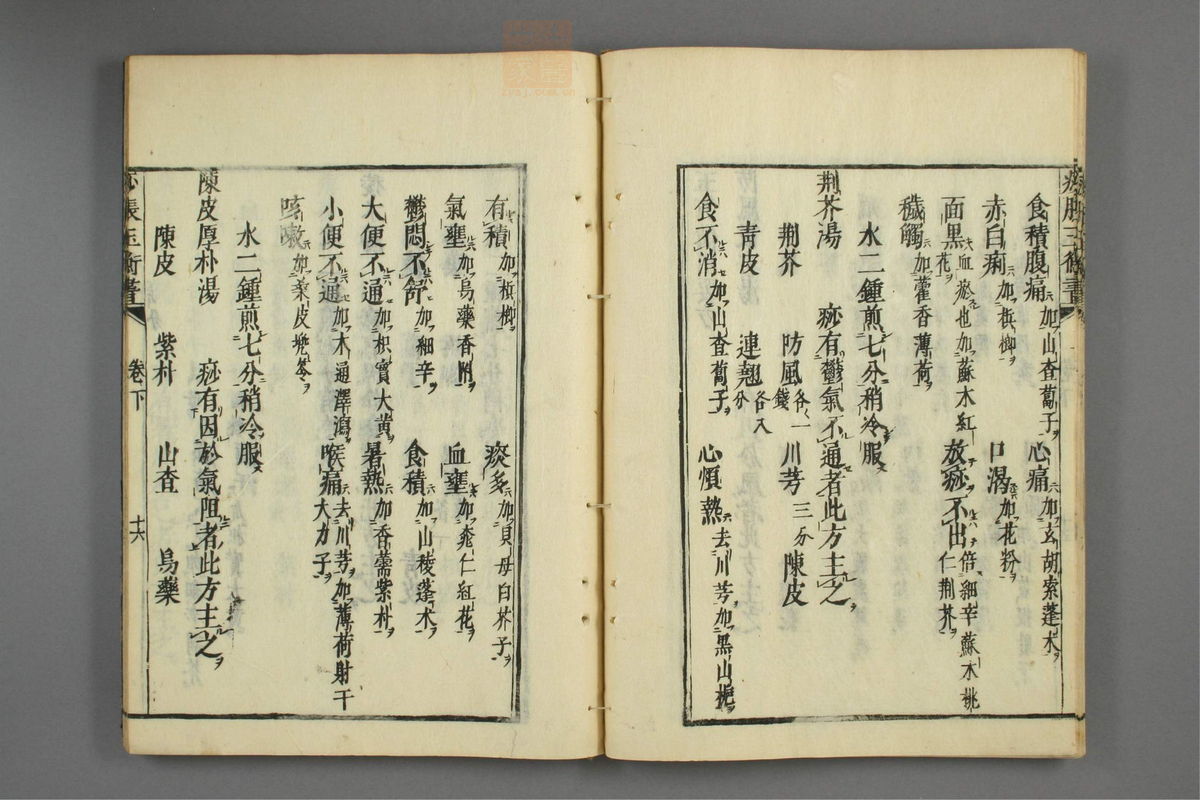 食積腹痛加山查蔔子心痛加玄胡索蓬朮
赤白痢加梹榔口渴加花粉
面黑血瘀也加蘇木紅花放痧不出倍細辛蘇木桃仁荆芥
穢觸加藿香薄荷
水二鍾煎七分稍冷服
荆芥湯 痧有鬱氣不通者此方主之
荆芥 防風各一錢 川芎三分 陳皮
青皮 連翹各八分
食不消加山查蔔子心煩熱去川芎加黑山栀
有積加梹榔 痰多加貝母白芥子
氣壅加烏藥香附 血壅加桃仁紅花
鬱悶不舒加細辛 食積加山稜蓬朮
大便不通加枳實大黃 暑熱加香薷紫朴
小便不通加木通澤瀉 喉痛去川芎加薄荷射干大力子
咳嗽加桑皮兜苓
水二鍾煎七分稍冷服
陳皮厚朴湯 痧有因於氣阻者此方主之
陳皮 紫朴 山查 烏藥
卷下 十六